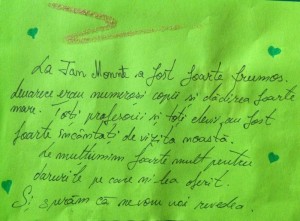 La Jam Momente a fost foarte frumos.
deoarece erau numeroși copii și clădirea foarte
mare. Toți profesorii și toți elevii au fost
foarte încântați de vizita noastră.
Le mulțumim foarte mult pentru
darurile pe care ni le-a oferit.
Și sperăm că ne vom mai revedea.